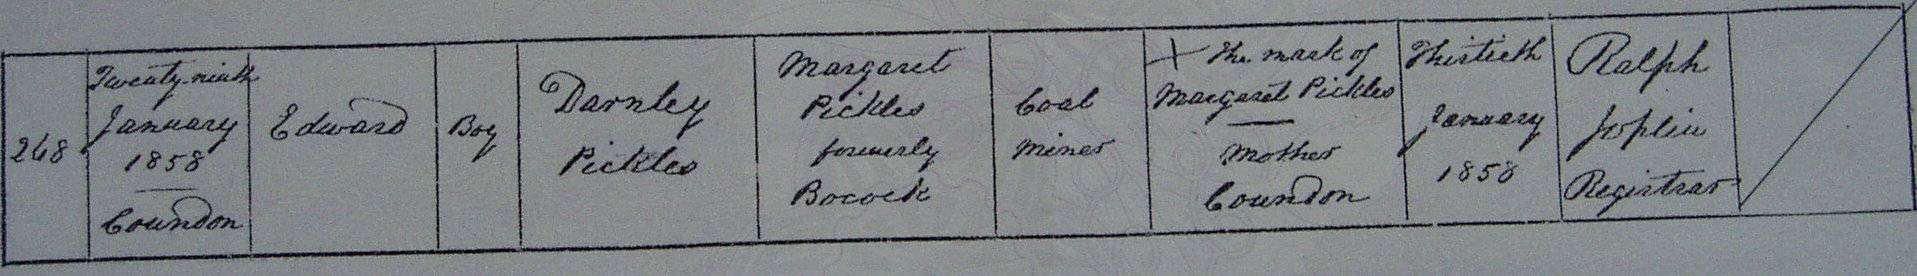 248
Twenty ninth
January
1858
Coundon
Edward
Boy
Darnley
Pickles
Margaret
Pickles
formerly
Bocock
Coal
Miner
X The mark of
Margaret Pickles
Mother
Coundon
Thirtieth
January
1858
Ralph
Joplin
Registrar